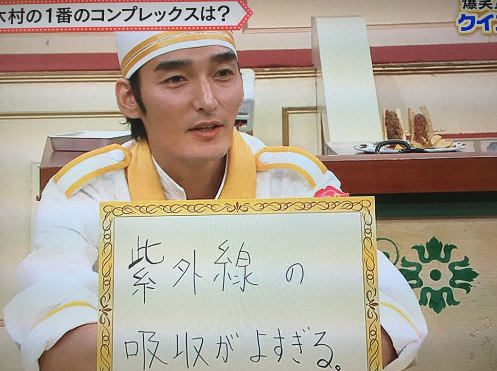 木村の1番のコンプレックスは?
爆笑
クイ
紫外線の
吸収がよすぎる。